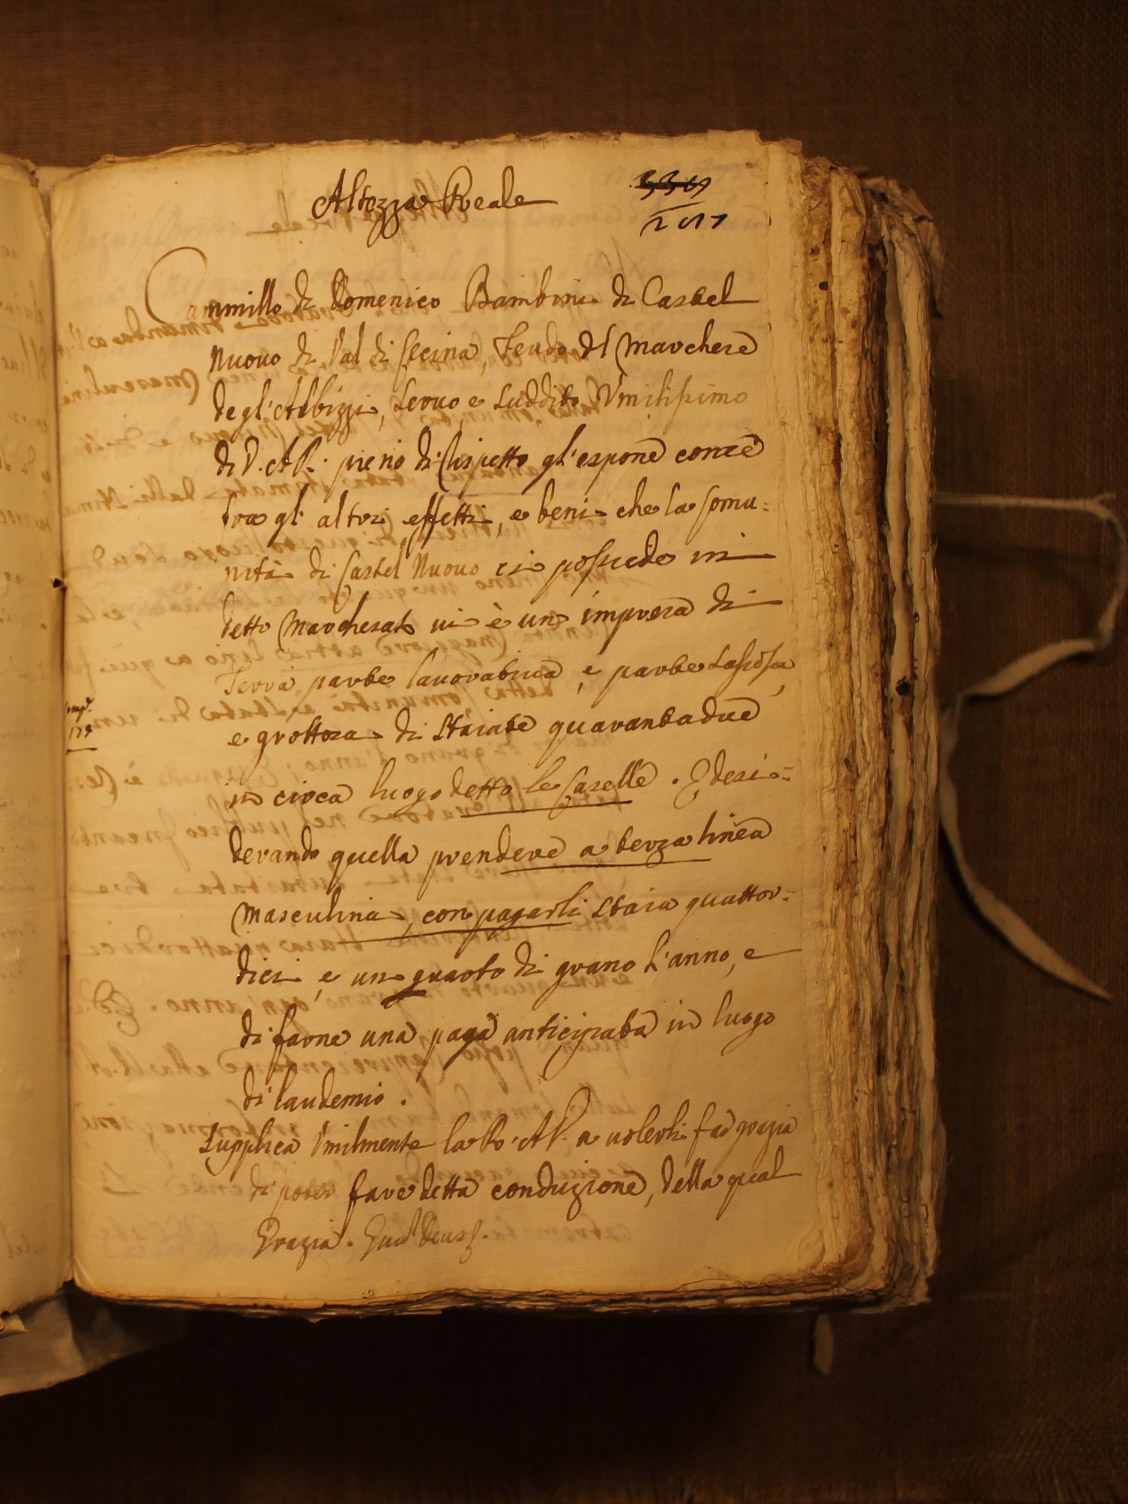 Altezza Reale
2017
Cammillo di Domenico Bambini di Castel
Nuovo di Val di Cecina, Feudo del Marchese
degl'Albizzi, servo, e suddito Umilissimo
di V. A. R. pieno di rispetto gl'espone come
tra gl'altri effetti, e beni che la Comu=
nità di Castel Nuovo ci possiede in
detto Marchesato vi è un impresa di
Terra, parte lavorativa, e parte sassosa,
e grottosa di staiate quarantadue
in circa luogo detto le Caselle. E desi=
derando quella prendere a terza linea
Masculina, con pagarli staia quattor=
dici, e un quarto di grano l'anno, e
di farne una paga anticipata in luogo
di laudemio.
Supplica Umilmente la R. A. V. a volerli far grazia
di poter fare detta conduzione, della qual
Grazia.